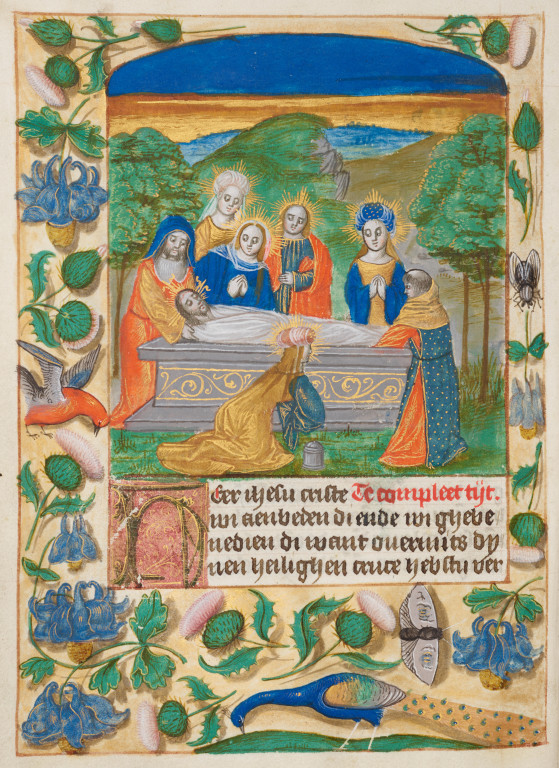 Heer ihesu criste Te compleet tijt.
wi aenbeden di ende wi ghebe
nedien di want ouermits dy
nen heilighen cruce hebstu ver